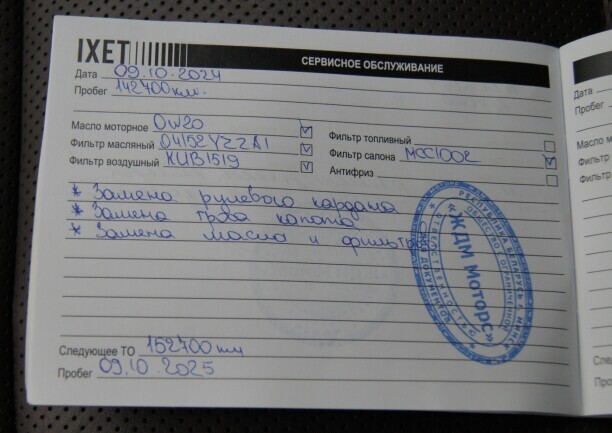 IXET
СЕРВИСНОЕ ОБСЛУЖИВАНИЕ
Дата 09.10.2024
Пробег 142700 км.
Масло моторное 0W20
Фильтр масляный 04152YZZA1
Фильтр воздушный KUB1519
Фильтр топливный
Фильтр салона MCC1002
Антифриз
* Замена рулевого кардана
* Замена троса капота
* Замена масла и фильтров
РЕСПУБЛИКА БЕЛАРУСЬ г. МИНСК
«ЖДМ Моторс»
Следующее ТО 152700 км
Пробег 09.10.2025
Дата
Пробег
Масло м
Фильтр
Фильтр
Сле
Про